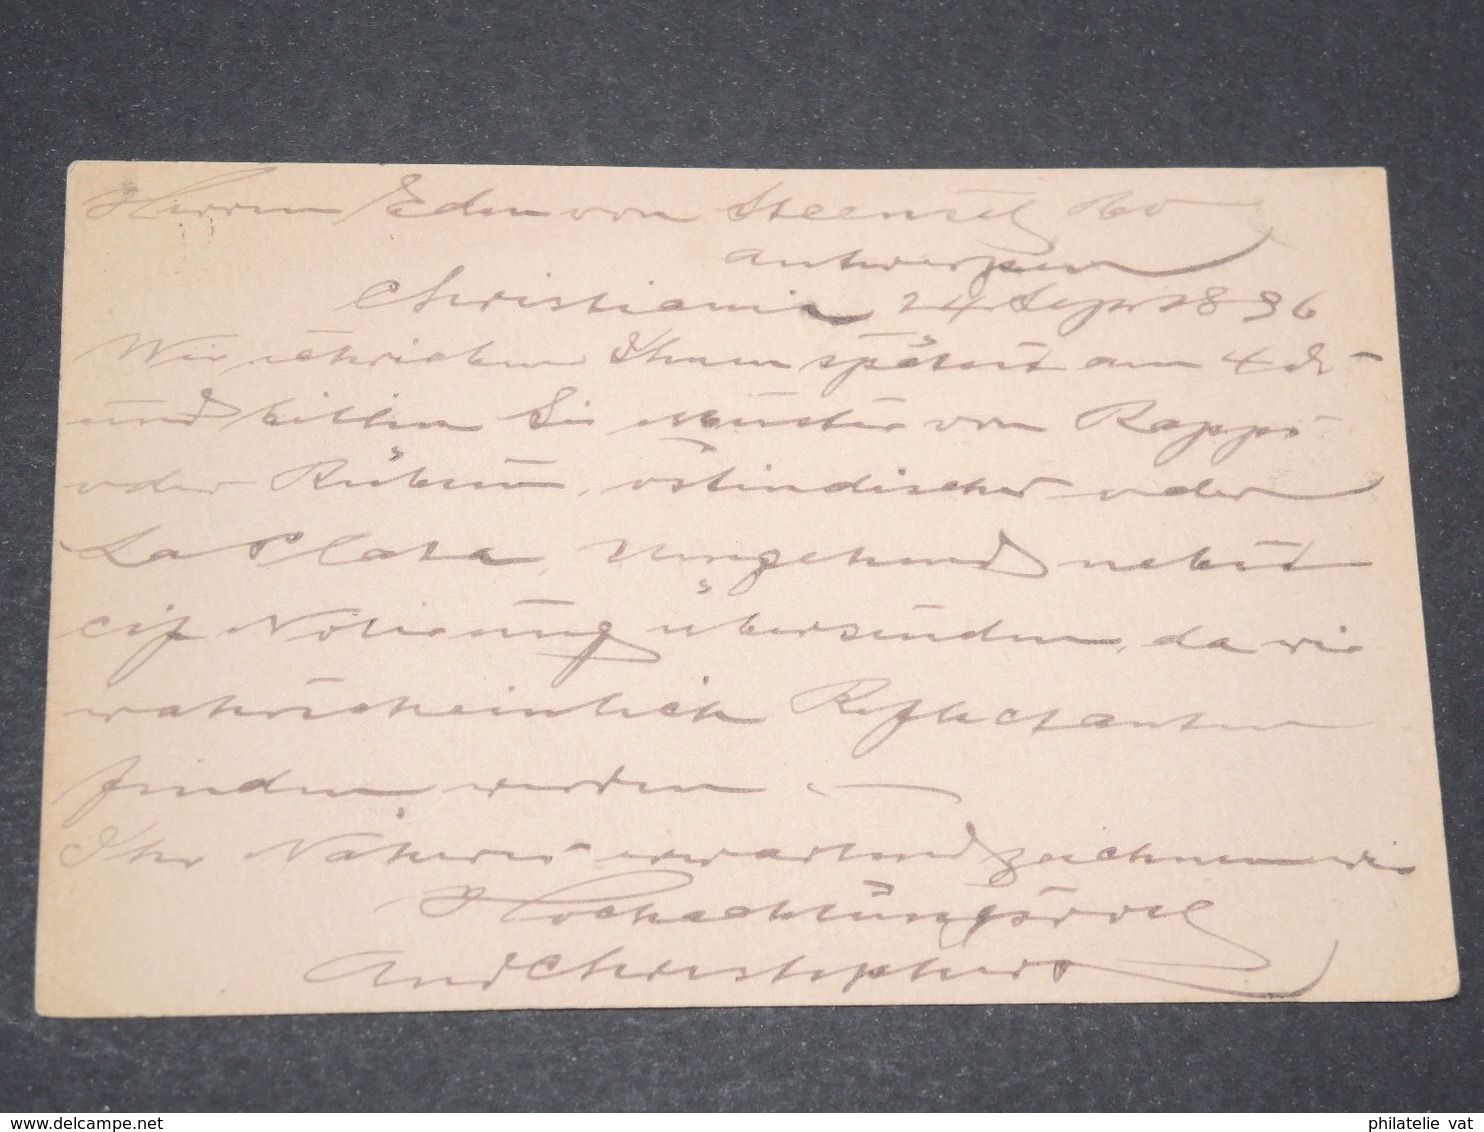 Herren Edm von Steensel & Co
Antwerpen
Christiania 24 Sept 1896
Wir schrieben Ihnen spätest am 4 ds
und bitten Sie Muster von Rapps
oder Rübsen, ostindischer oder
La Plata, umgehend nebst
cif Notierung übersenden, da wir
wahrscheinlich Reflectanten
finden werden.—
Ihr Näheres erwartend zeichnen wir
Hochachtungsvoll
And Christophersen
www.delcampe.net
philatelie vat